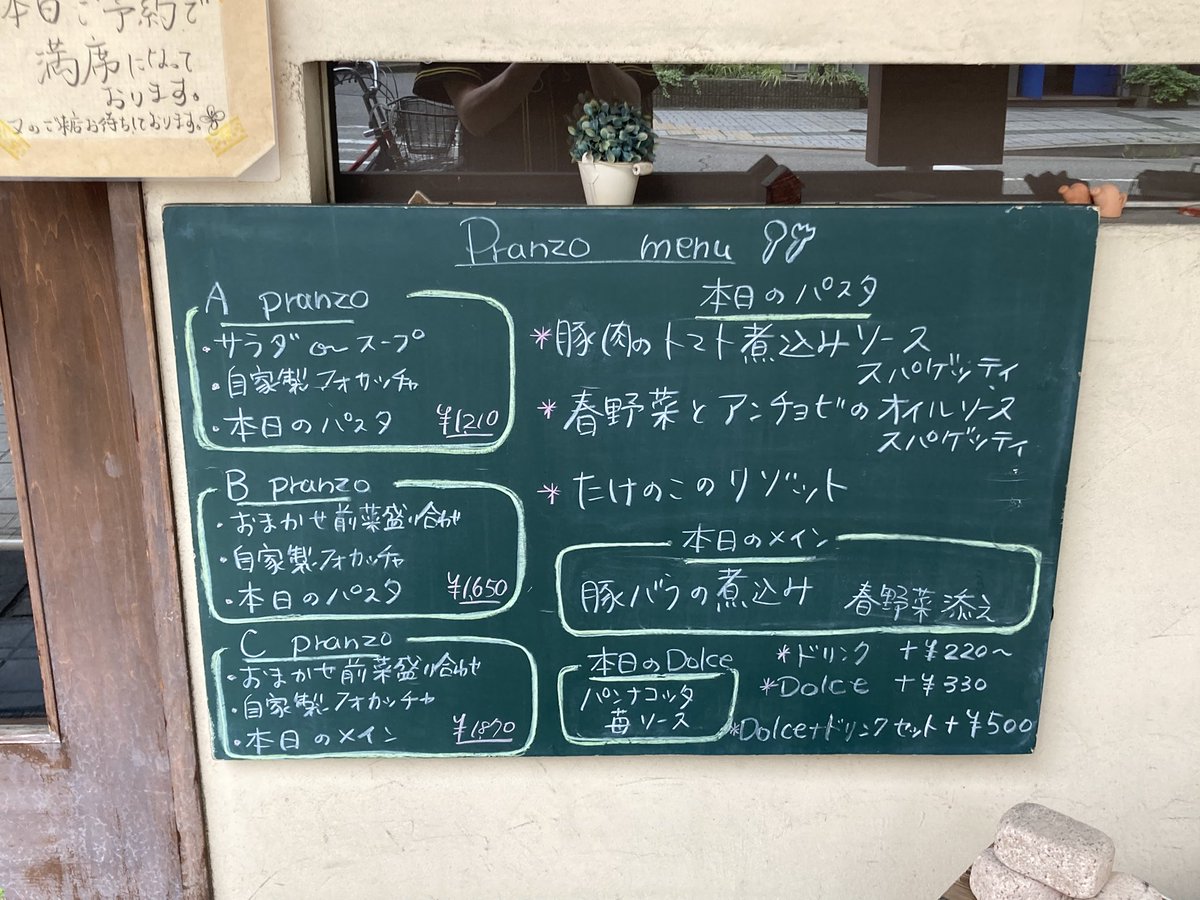 本日ご予約で
満席になって
おります。
又のご来店お待ちしております。
Pranzo menu
A pranzo
・サラダ or スープ
・自家製フォカッチャ
・本日のパスタ ¥1,210
B pranzo
・おまかせ前菜盛り合わせ
・自家製フォカッチャ
・本日のパスタ ¥1,650
C pranzo
・おまかせ前菜盛り合わせ
・自家製フォカッチャ
・本日のメイン ¥1,870
本日のパスタ
*豚肉のトマト煮込みソース
スパゲッティ
*春野菜とアンチョビのオイルソース
スパゲッティ
*たけのこのリゾット
本日のメイン
豚バラの煮込み 春野菜添え
本日のDolce
パンナコッタ
苺ソース
*ドリンク +¥220〜
*Dolce +¥330
*Dolce+ドリンクセット+¥500